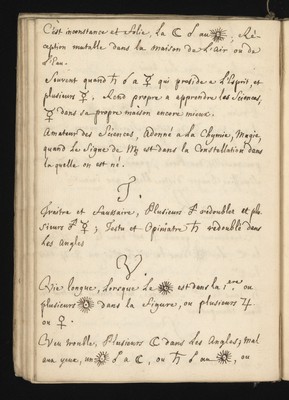 C'est inconstance et folie, la ☾ ☌ au ☉, Ré-
ception mutable dans la maison de L'air ou de
L'Eau.
Souvent quand ♄ ☌ a ☿ qui preside a L'Esprit, et
plusieurs ☿, Rend propre a apprendre les Sciences,
☿ dans sa propre maison encore mieux.
Amateur des Sciences, Adonné a la Chymie, Magie,
quand Le Signe de ♏ est dans la Constellation dans
la quelle on est né.
T.
Traitre et Faussaire, Plusieurs redoublez et plu-
sieurs ☿; Testu et Opiniatre ♄ redoublé dans
les Angles
V.
Vie longue, Lorsque Le ☉ est dans la 1.ere ou
plusieurs ☉ dans la figure, ou plusieurs ♃
ou ♀.
Veu trouble, Plusieurs ☾ dans les Angles; mal
aux yeux, un ☉ ☌ a ☾, ou ♄ ☌ au ☉, ou